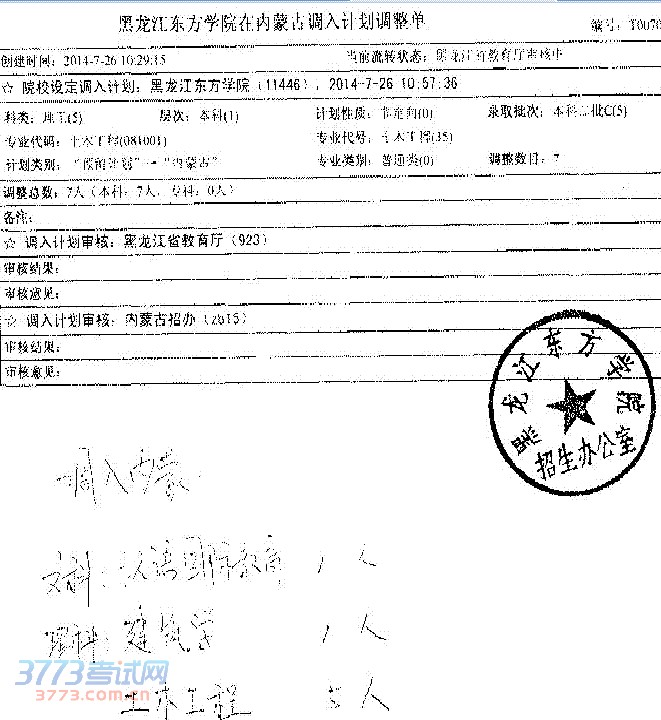 黑龙江东方学院在内蒙古调入计划调整单
编号：T0070
创建时间：2014-7-26 10:29:15 当前流转状态：黑龙江省教育厅审核中
☆ 院校设定调入计划：黑龙江东方学院（11446），2014-7-26 10:57:36
科类：理工(5) 层次：本科(1) 计划性质：非定向(0) 录取批次：本科二批C(5)
专业代码：土木工程(081001) 专业代号：土木工程(35)
计划类别：“预留计划”-“内蒙古” 专业类别：普通类(0) 调整数目：7
调整总数：7人（本科：7人，专科：0人）
备注：
☆ 调入计划审核：黑龙江省教育厅（923）
审核结果：
审核意见：
☆ 调入计划审核：内蒙古招办（zb15）
审核结果：
审核意见：
黑龙江东方学院
招生办公室
调入内蒙
文科：汉语国际教育 1人
理科：建筑学 1人
土木工程 5人
3773考试网
3773.com.cn